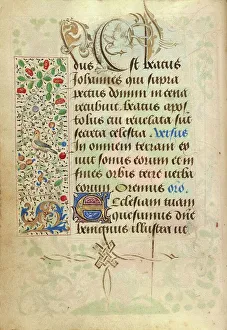 dus Est beatus
Iohannes qui supra
pectus domini in cena
recubuit. Beatus apos
tolus cui reuelata sut
secreta celestia. Versus
In omnem terram exi
uit sonus eorum et in
fines orbis terre uerba
eorum. Oremus oro.
Ecclesiam tuam
quesumus dne
benignus illustra ut